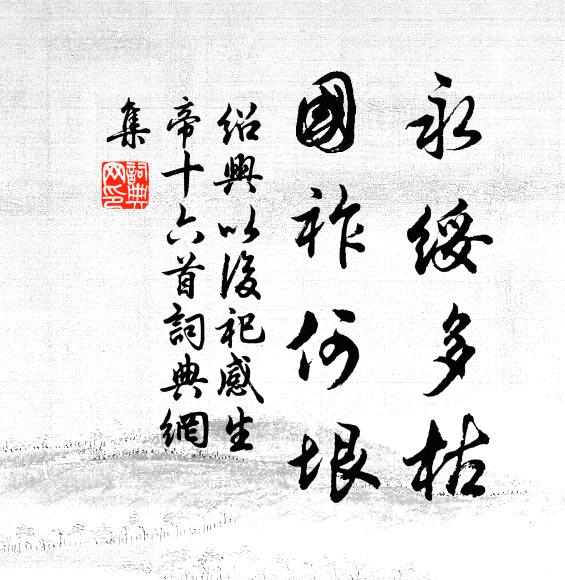 永綏多枯
國祚何垠
紹興以後祀感生
帝十六首詞典網
集
詞典
网印